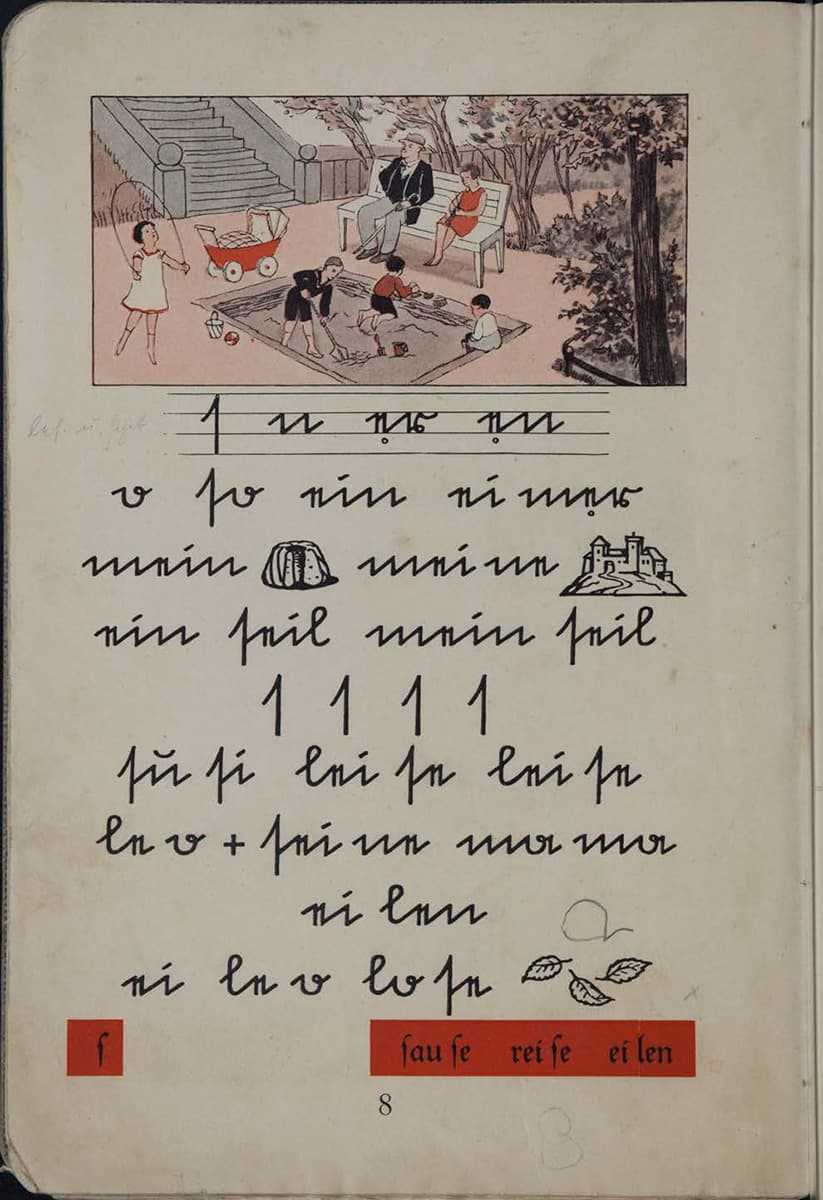 ſ n ẹr ẹn
o ſo ein ei mẹr
mein mei ne
ein ſeil mein ſeil
ſ ſ ſ ſ
ſu ſi lei ſe lei ſe
le o + ſei ne ma ma
ei len
ei le o lo ſe
ſ ſau ſe rei ſe ei len
8